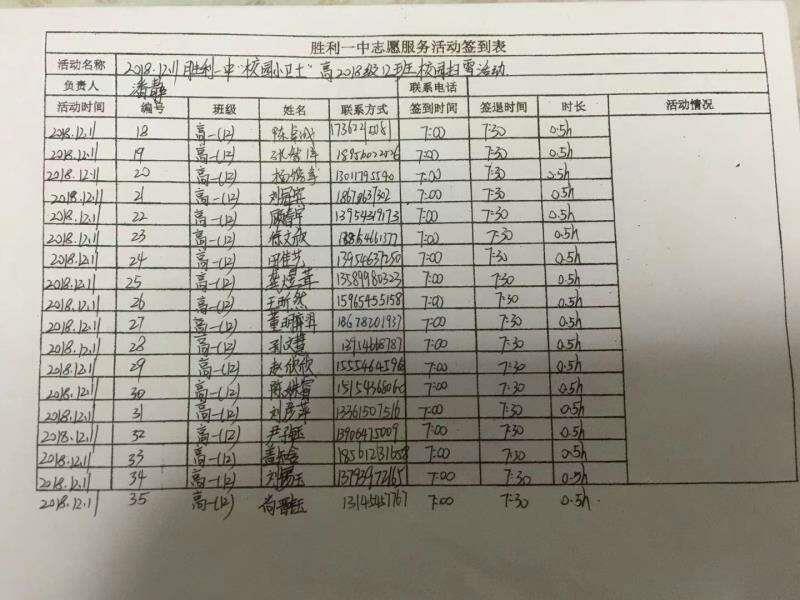 胜利一中志愿服务活动签到表
活动名称 2018.12.11胜利一中"校园小卫士"高2018级12班校园扫雪活动
负责人 联系电话
活动时间 编号 班级 姓名 联系方式 签到时间 签退时间 时长 活动情况
2018.12.11 18 高一(12) 7:00 7:30 0.5h
2018.12.11 19 高一(12) 7:00 7:30 0.5h
2018.12.11 20 高一(12) 13011795540 7:00 7:30 0.5h
2018.12.11 21 高一(12) 7:00 7:30 0.5h
2018.12.11 22 高一(12) 7:00 7:30 0.5h
2018.12.11 23 高一(12) 徐文欣 7:00 7:30 0.5h
2018.12.11 24 高一(12) 田佳艺 13954637250 7:00 7:30 0.5h
2018.12.11 25 高一(12) 13589980323 7:00 7:30 0.5h
2018.12.11 26 高一(12) 王昕然 15965455158 7:00 7:30 0.5h
2018.12.11 27 高一(12) 18678201937 7:00 7:30 0.5h
2018.12.11 28 高一(12) 7:00 7:30 0.5h
2018.12.11 29 高一(12) 赵欣欣 1555464596 7:00 7:30 0.5h
2018.12.11 30 高一(12) 7:00 7:30 0.5h
2018.12.11 31 高一(12) 刘彦萍 13361507516 7:00 7:30 0.5h
2018.12.11 32 高一(12) 尹子钰 13906475009 7:00 7:30 0.5h
2018.12.11 33 高一(12) 7:00 7:30 0.5h
2018.12.11 34 高一(12) 7:00 7:30 0.5h
2018.12.11 35 高一(12) 7:00 7:30 0.5h